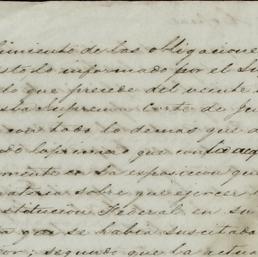 limiento de las obligacione
estado informado por el Su
do que precede del veinte
sta Suprema Corte de Ju
con todo lo demas que
do la primero que con
mento en la exposicion qu
atoria sobre que ejercer
stitucion Federal en su
a que se habia suscitado
segundo que la actua